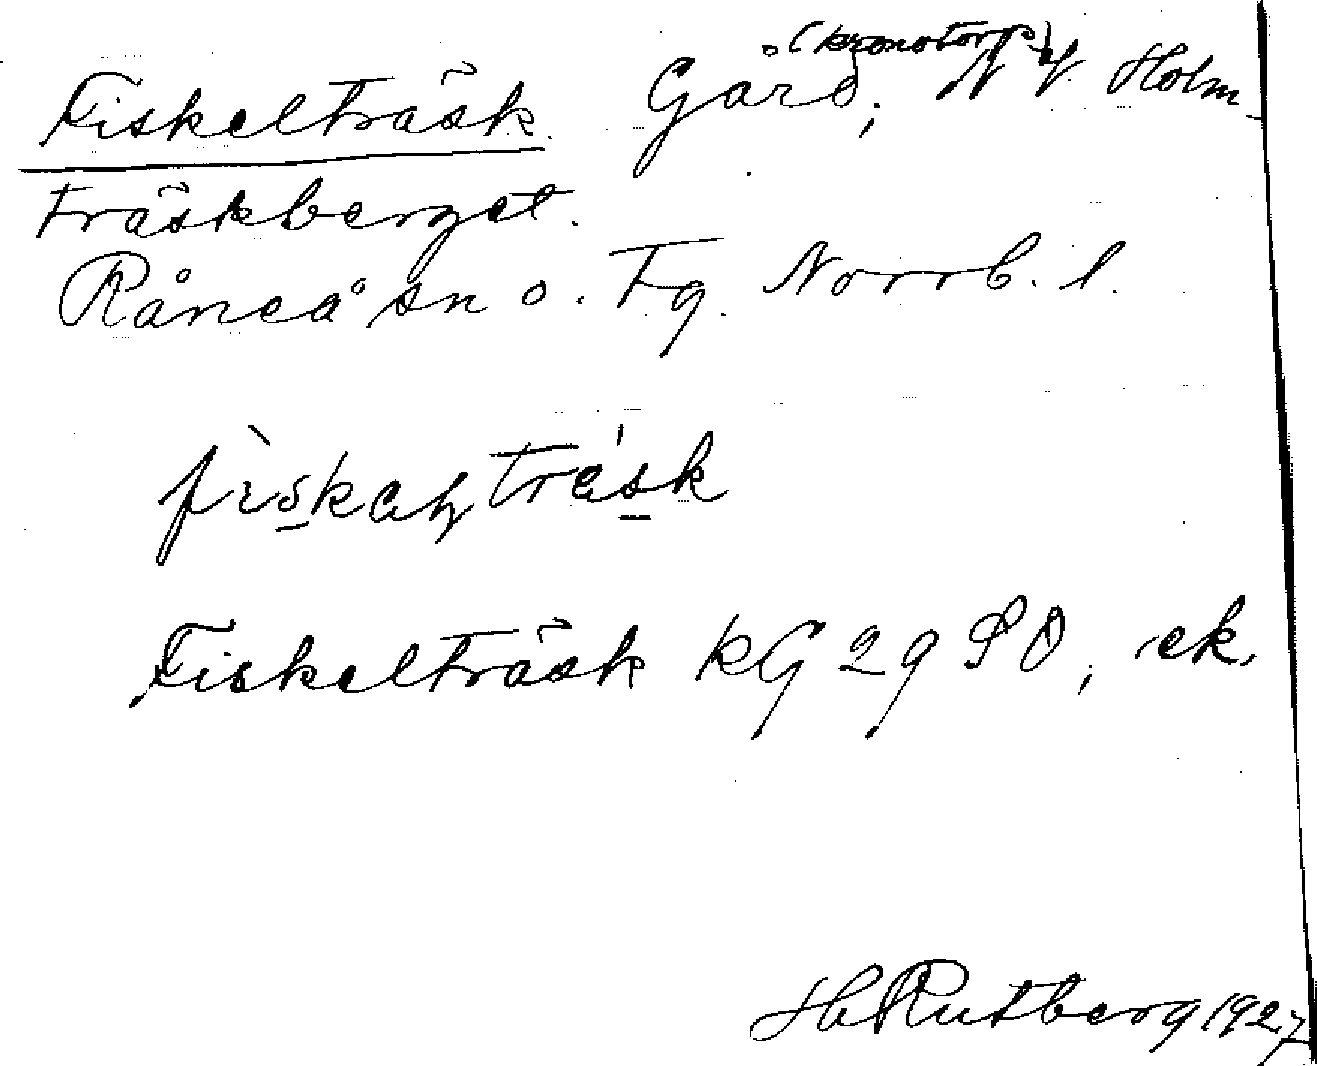 (kronotorp)
Fiskelträsk. Gård, N V. Holm
träskberget.
Råneå sn o. Tg. Norrb. l.
Fiskelträsk KG 29 SO, ek.
H Rutberg 1927